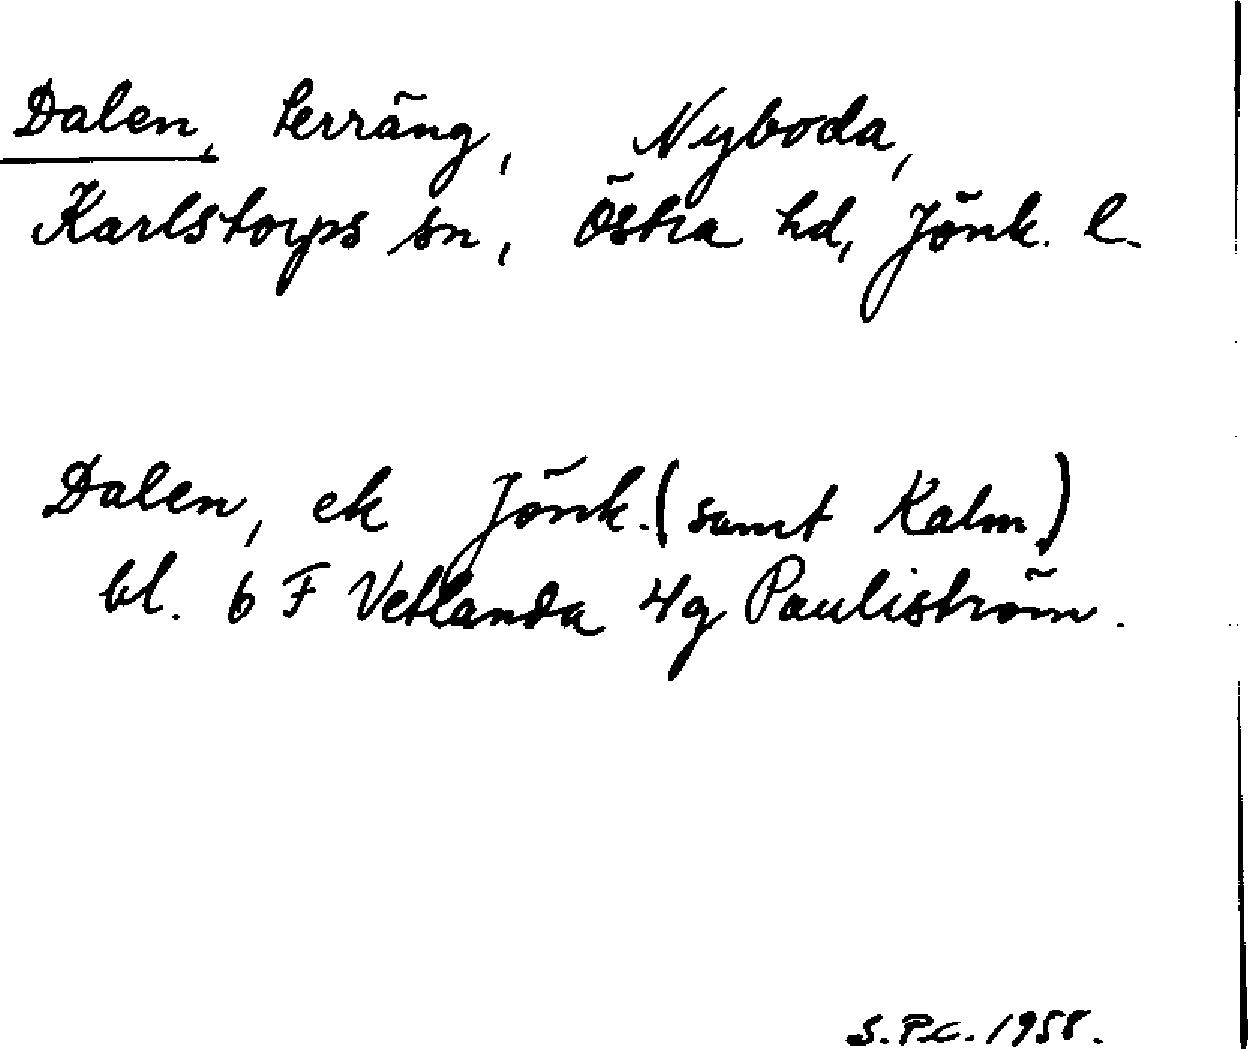 Dalen, terräng, Nyboda,
Karlstorps sn, Östra hd, Jönk. l.
Dalen, ek Jönk. (samt Kalm.)
bl. 6 F Vetlanda 4g Pauliström.
S.P.C. 1958.